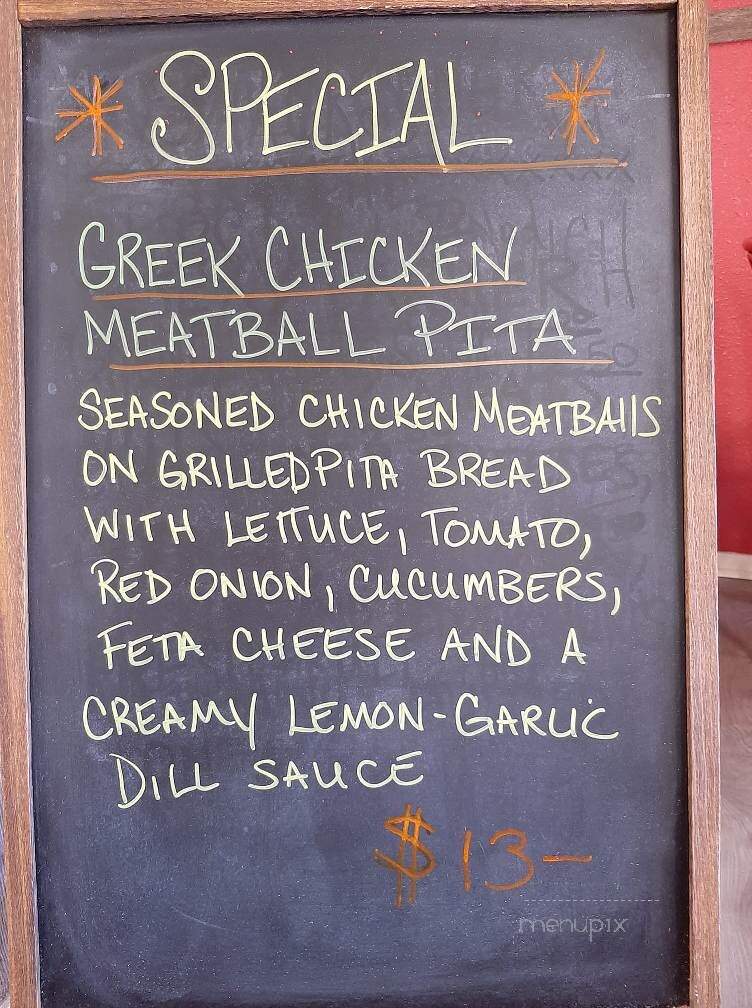 * SPECIAL *
GREEK CHICKEN
MEATBALL PITA
SEASONED CHICKEN MEATBAllS
ON GRILLED PITA BREAD
WITH LETTUCE, TOMATO,
RED ONION, CUCUMBERS,
FETA CHEESE AND A
CREAMY LEMON-GARLIC
DILL SAUCE
$13-
menupix